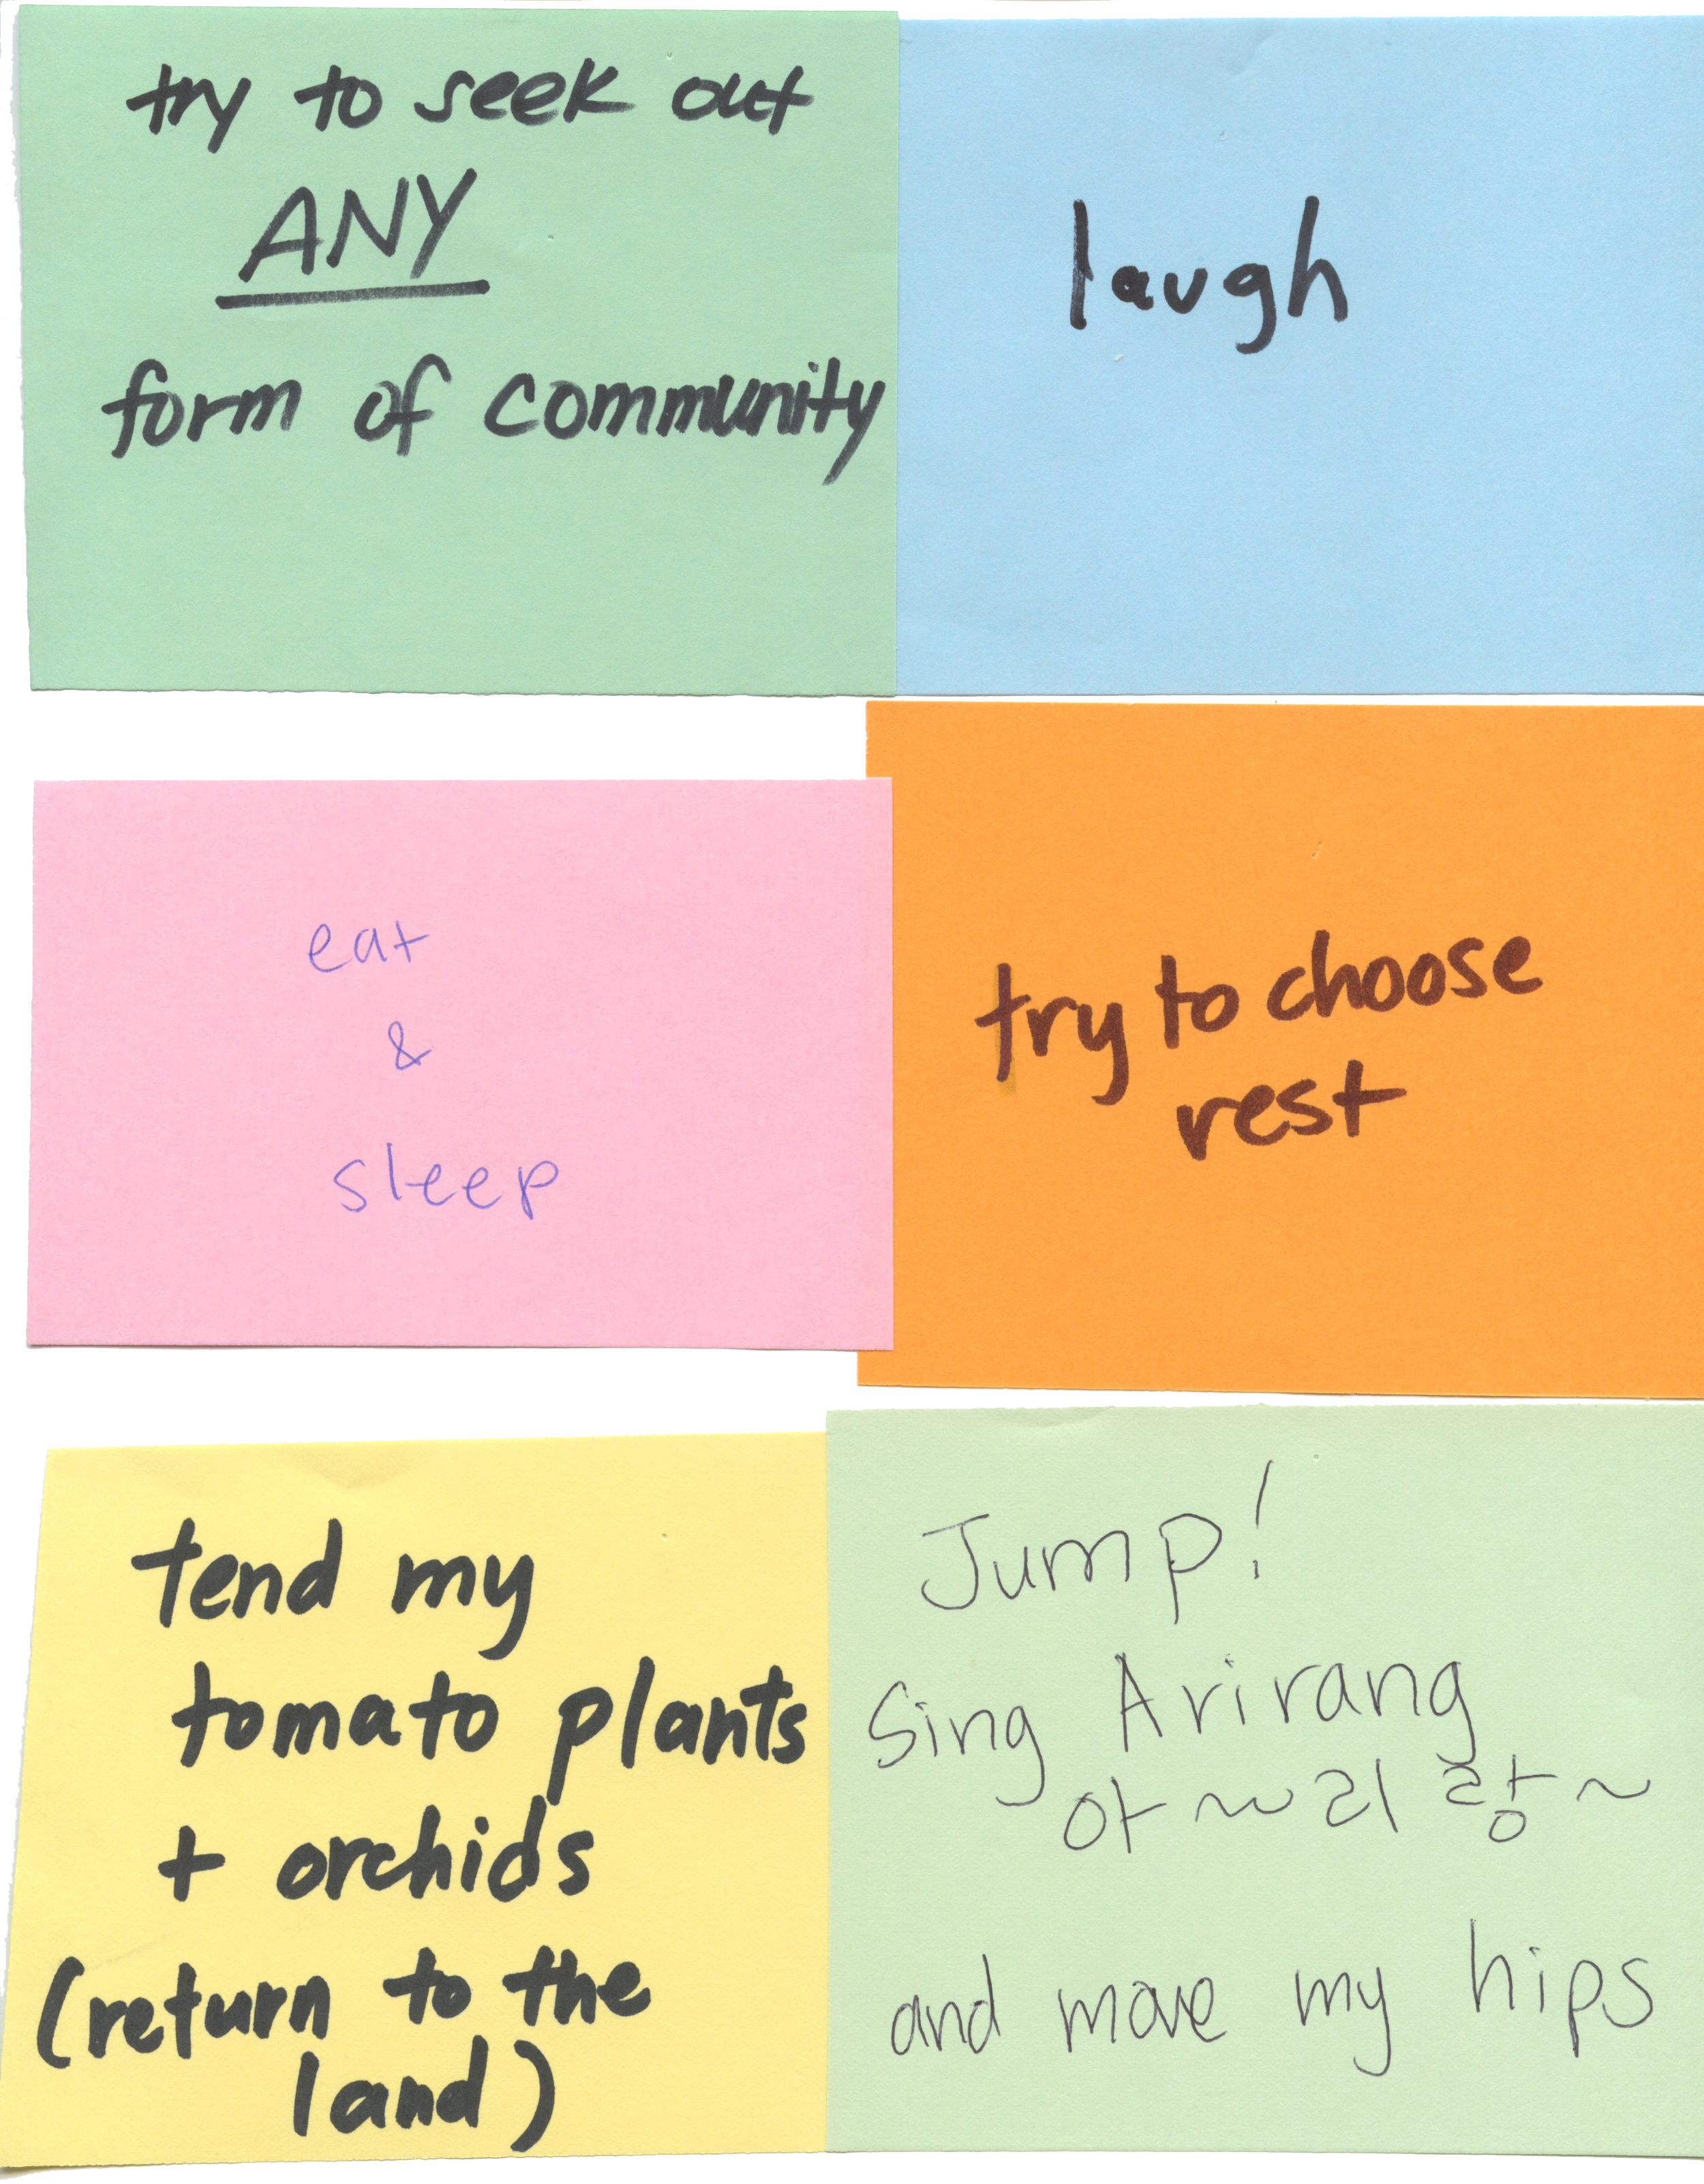 try to seek out
ANY
form of community
laugh
eat
&
sleep
try to choose
rest
tend my
tomato plants
+ orchids
(return to the
land)
Jump!
Sing Arirang
아~~리랑~
and move my hips